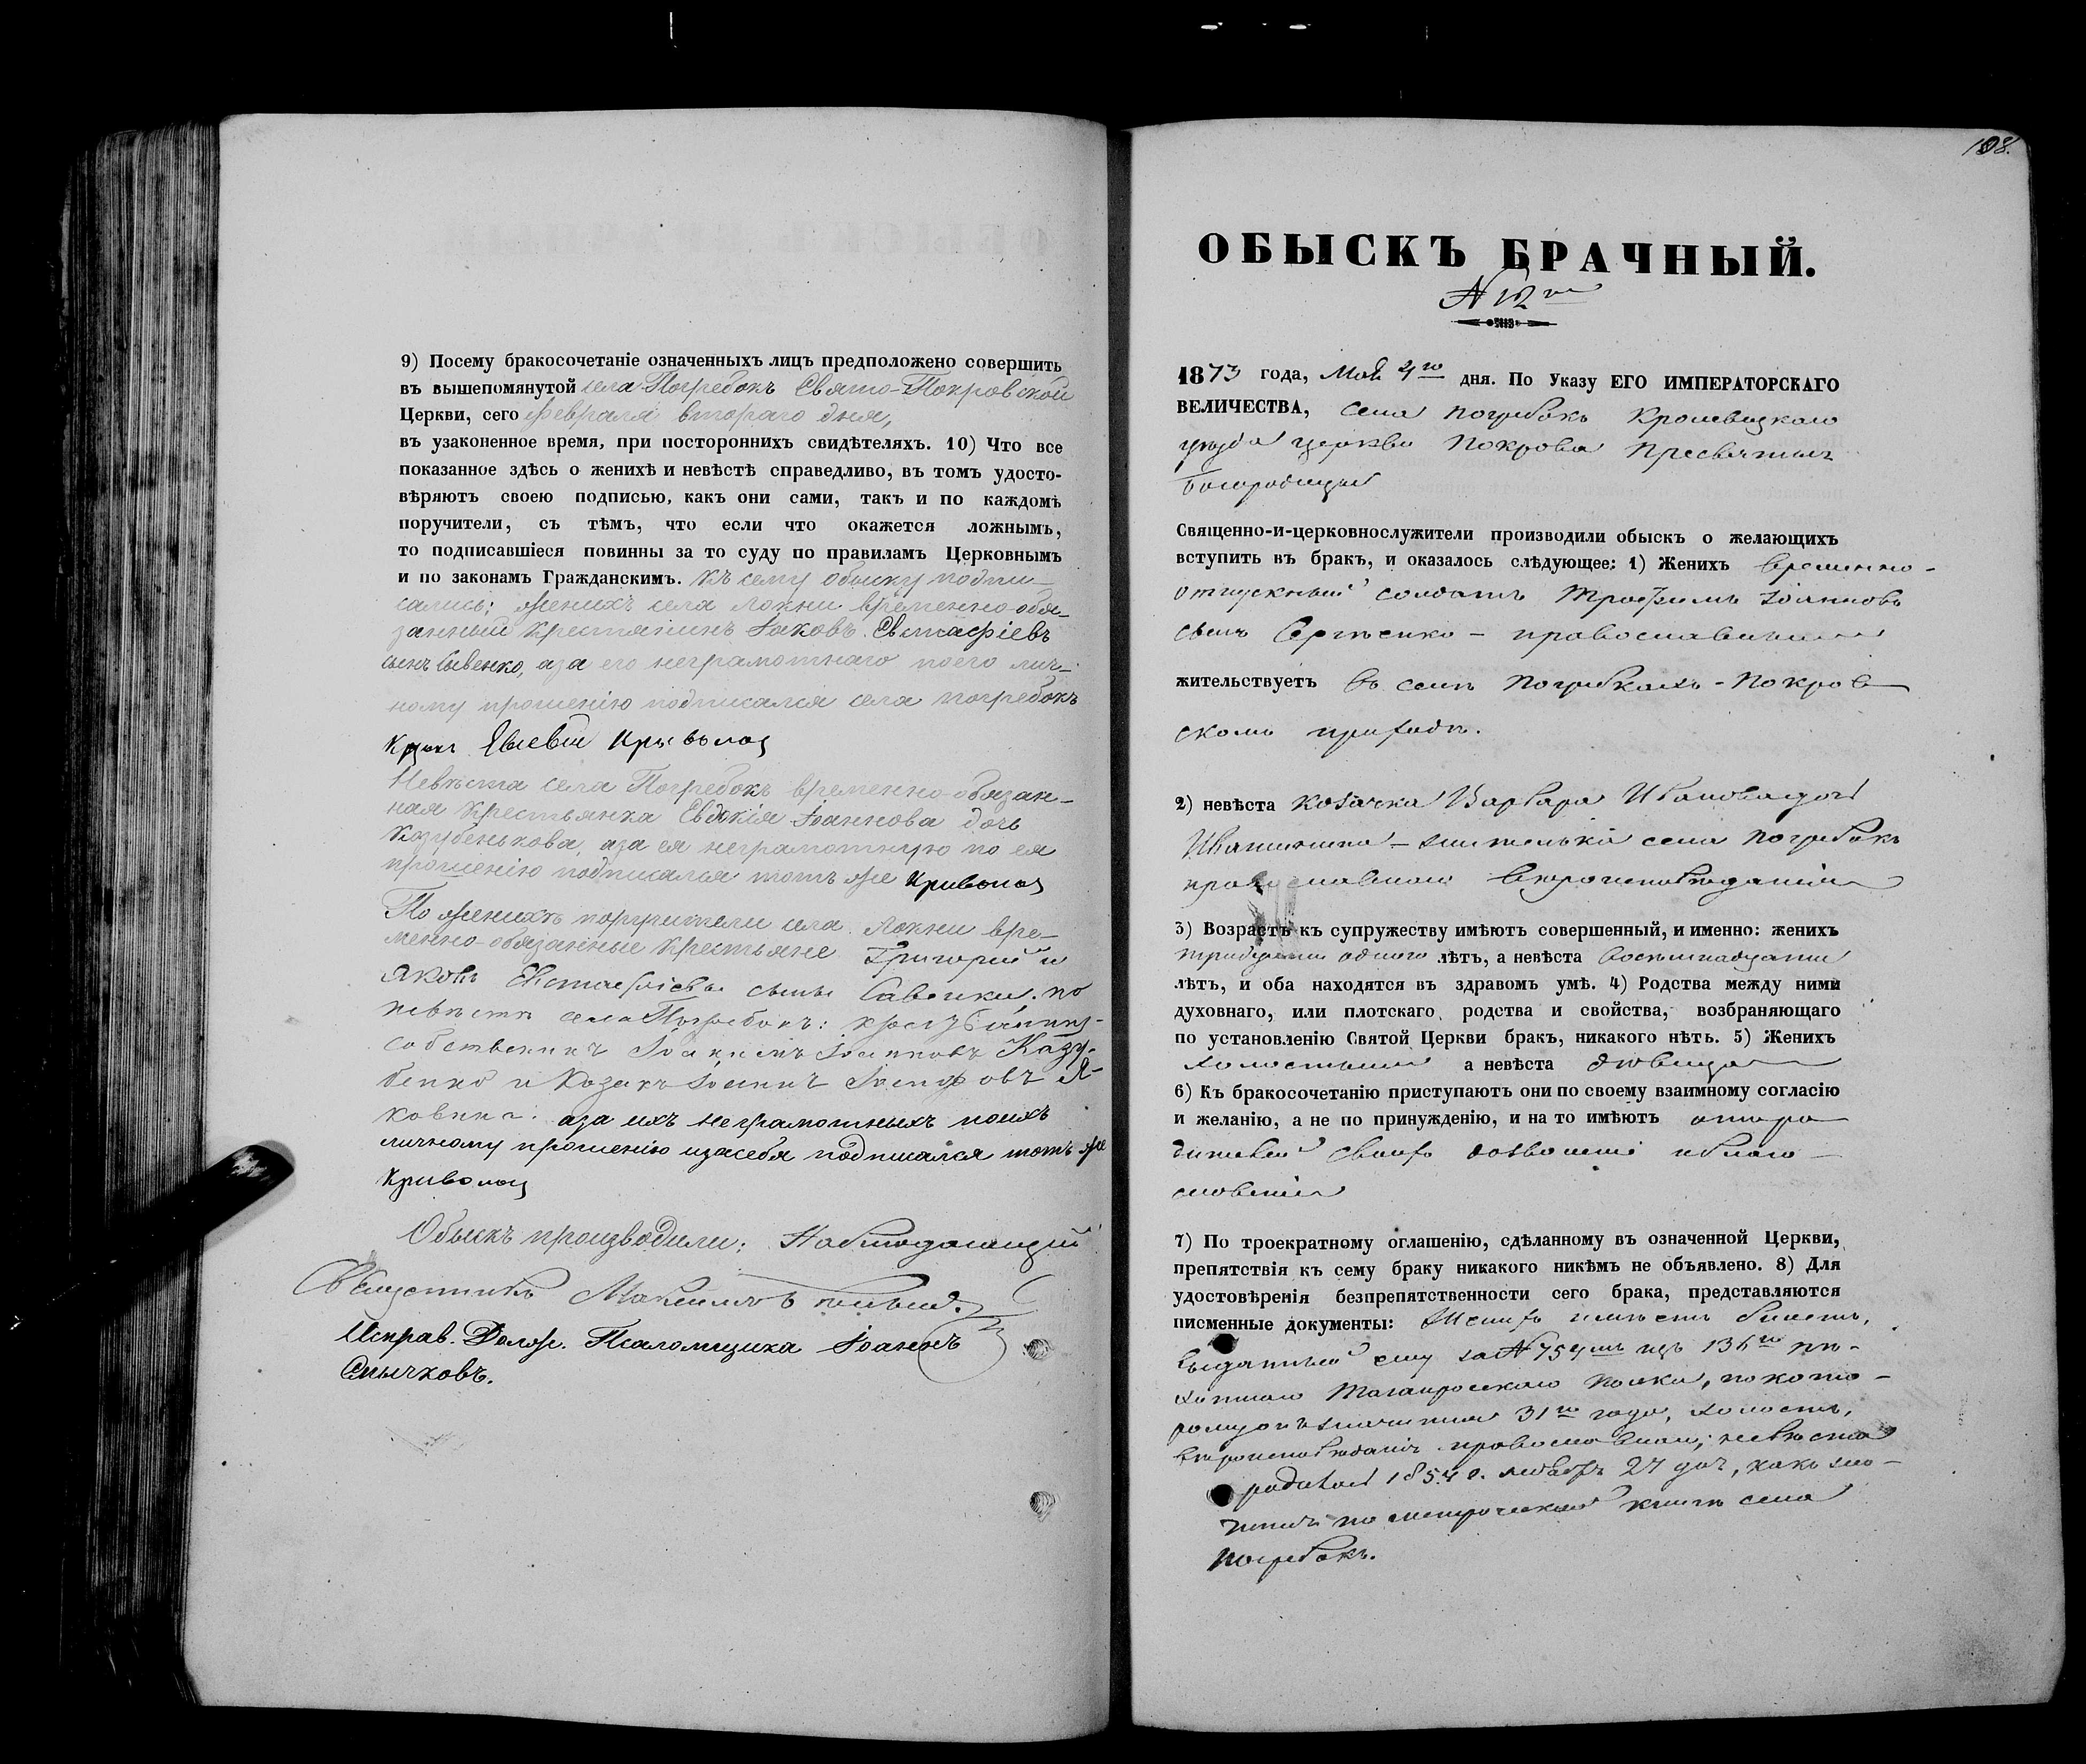 9) Посему бракосочетаніе означенныхъ лицъ предположено совершить
въ вышепомянутой села Погребокъ Свято-Покровской
Церкви, сего февраля втораго дня,
въ узаконенное время, при постороннихъ свидѣтеляхъ. 10) Что все
показанное здѣсь о женихѣ и невѣстѣ справедливо, въ томъ удосто-
вѣряютъ своею подписью, какъ они сами, такъ и по каждомъ
поручители, съ тѣмъ, что если что окажется ложнымъ,
то подписавшіеся повинны за то суду по правиламъ Церковнымъ
и по законамъ Гражданскимъ. Къ сему обыску подпи-
сались: женихъ села Локни временно-обя-
занный крестьянинъ Іаковъ Евстафіевъ
сынъ Савенко, а за его неграмотнаго по его лич-
ному прошенію подписался села Погребокъ
Кривоносъ
Невѣста села Погребокъ временно-обязан-
ная крестьянка Евдокія Іоаннова дочь
Казубенькова, а за ея неграмотную по ея
прошенію подписался тотъ же Кривоносъ
По женихѣ поручители села Локни вре-
менно-обязанные крестьяне Григорій и
Яковъ Евстафіевы сыны Савенки. по
невѣстѣ села Погребокъ:
собственникъ Іоакимъ Іоанновъ Казу-
бенко и Козакъ Іоаннъ Іосифовъ Я-
ковина. а за ихъ неграмотныхъ по ихъ
личному прошенію и за себя подписался тотъ же
Кривоносъ
Обыскъ производили: Наблюдающій
Священникъ Максимовъ
Исправ. Долж. Псаломщика Іоаннъ
Смычковъ.
108.
ОБЫСКЪ БРАЧНЫЙ.
N 12
1873 года, Мая 4го дня. По Указу ЕГО ИМПЕРАТОРСКАГО
ВЕЛИЧЕСТВА, села Погребокъ Кролевецкаго
уѣзда церкви Покрова Пресвятыя
Богородицы
Священно-и-церковнослужители производили обыскъ о желающихъ
вступить въ бракъ, и оказалось слѣдующее: 1) Женихъ временно-
отпускный солдатъ Трофимъ Іоанновъ
сынъ Сергѣенко - православный
жительствуетъ въ селѣ Погребкахъ - Покров
скомъ приходѣ.
2) невѣста козачка Варвара Иванова дочь
Иванишина - жителька села Погребокъ
православнаго вѣроисповѣданія
3) Возрастъ къ супружеству имѣютъ совершенный, и именно: женихъ
тридцати одного лѣтъ, а невѣста восемнадцати
лѣтъ, и оба находятся въ здравомъ умѣ. 4) Родства между ними
духовнаго, или плотскаго родства и свойства, возбраняющаго
по установленію Святой Церкви бракъ, никакого нѣтъ. 5) Женихъ
холостый а невѣста дѣвица
6) Къ бракосочетанію приступаютъ они по своему взаимному согласію
и желанію, а не по принужденію, и на то имѣютъ отъ ро
дителей своихъ дозволеніе и благо-
словеніе
7) По троекратному оглашенію, сдѣланному въ означенной Церкви,
препятствія къ сему браку никакого никѣмъ не объявлено. 8) Для
удостовѣренія безпрепятственности сего брака, представляются
писменные документы: Женихъ имѣетъ билетъ,
выданный ему за N 754 изъ 136го пѣ-
хотнаго Таганрогскаго полка, по кото-
рому онъ значится 31го года, холостъ,
вѣроисповѣданія православнаго; невѣста
родилась 1854 г. ноября 27 дня, какъ зна-
чится по метрической книгѣ села
Погребокъ.